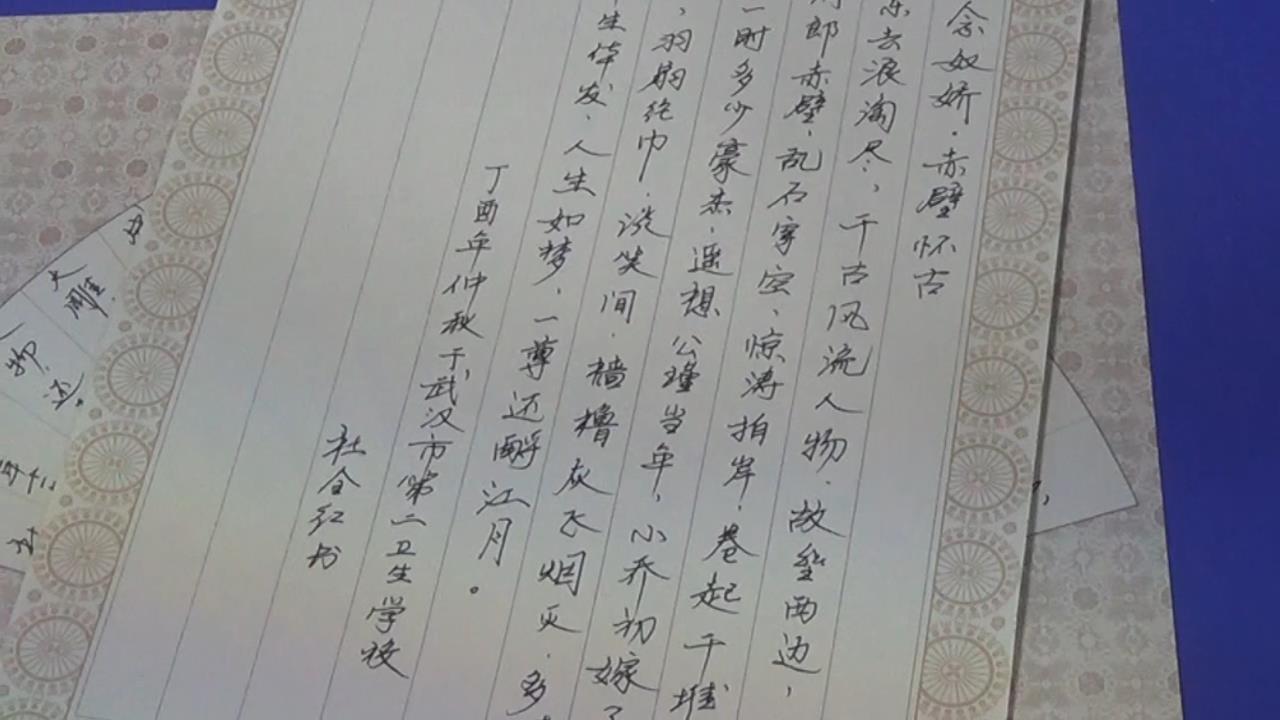 念奴娇·赤壁怀古
东去浪淘尽，千古风流人物.故垒西边，
郎赤壁、乱石穿空、惊涛拍岸，卷起千堆
一时多少豪杰.遥想公瑾当年，小乔初嫁了
，羽扇纶巾.谈笑间.樯橹灰飞烟灭.多
生华发.人生如梦，一尊还酹江月。
丁酉年仲秋于武汉市第二卫生学校
杜全红书
大雕
物.还